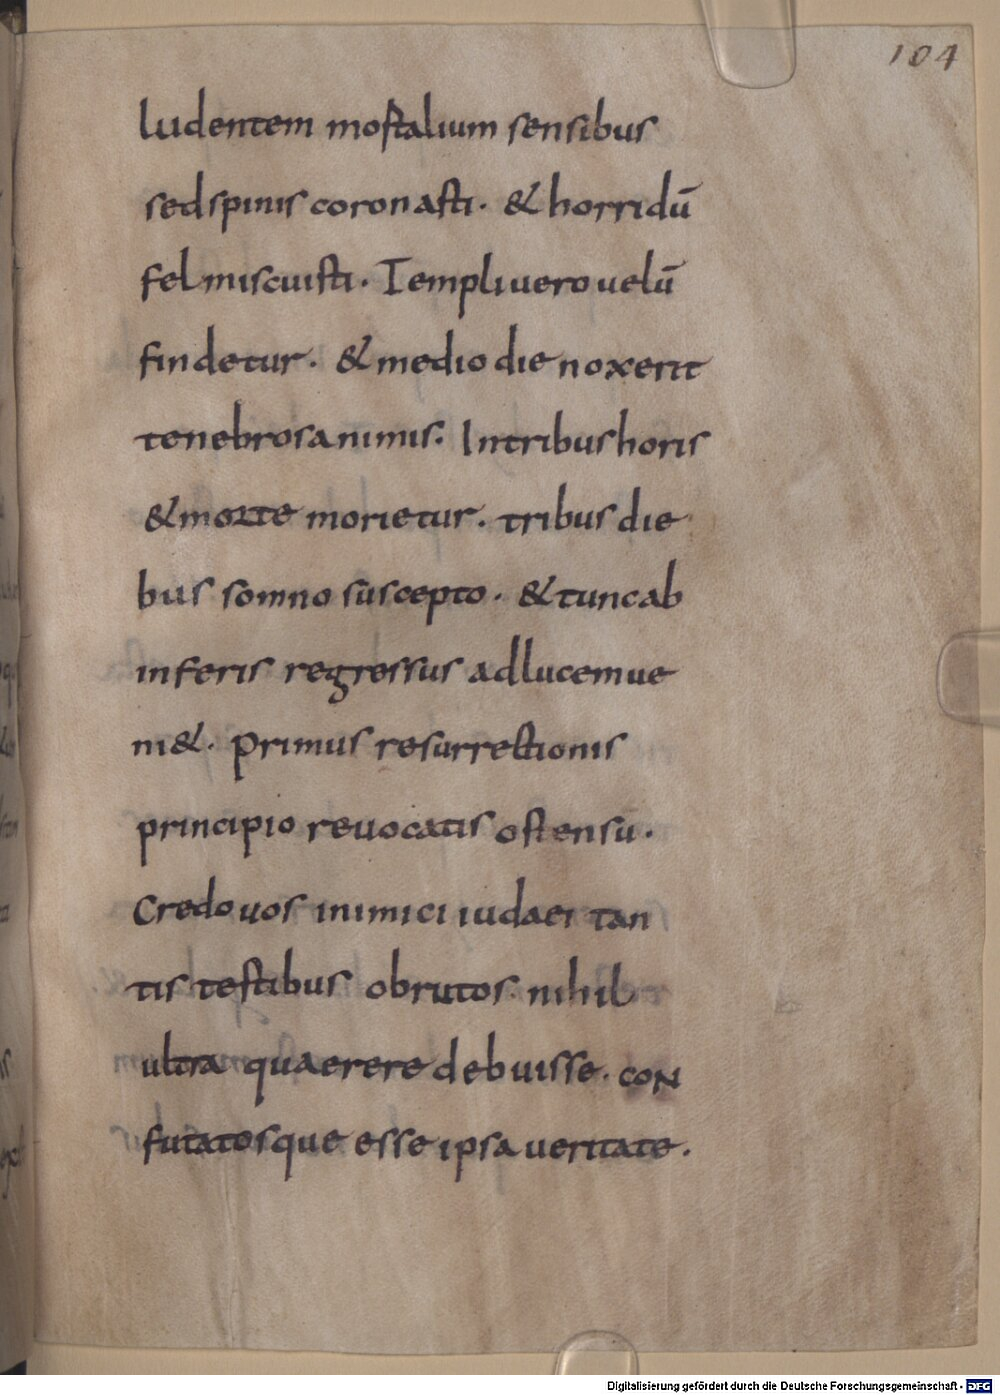 104
ludentem mostalium sensibus
sed spinis coronasti. & horridū
fel miscuisti. Templi vero uelū
findetur. & medio die nox erit
tenebrosa nimis. In tribus horis
& morte morietur. tribus die
bus somno suscepto. & tunc ab
inferis regressus ad lucem ue
ni&. primus resurrectionis
principio reuocatis ostensū.
Credo uos inimici iudaei tan
tis testibus obrutos nihil
ultra quaerere debuisse. con
futatosque esse ipsa ueritate.
Digitalisierung gefördert durch die Deutsche Forschungsgemeinschaft - DFG